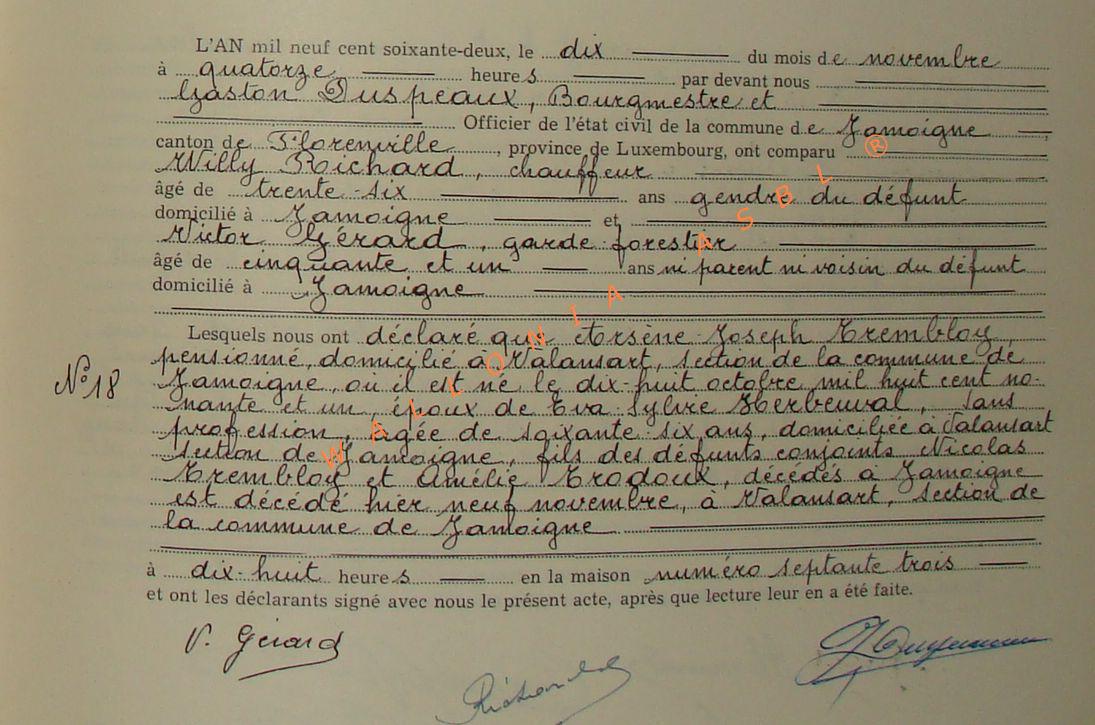 L'AN mil neuf cent soixante-deux, le dix du mois de novembre
à quatorze heures par devant nous
Gaston Duspeaux, Bourgmestre et
Officier de l'état civil de la commune de Jamoigne
canton de Florenville, province de Luxembourg, ont comparu
Willy Richard, chauffeur
âgé de trente-six ans gendre du défunt
domicilié à Jamoigne et
Victor Gérard, garde forestier
âgé de cinquante et un ans ni parent ni voisin du défunt
domicilié à Jamoigne
Lesquels nous ont déclaré que Arsène Joseph Trembloy,
pensionné, domicilié à Valansart, section de la commune de
Nº 18
Jamoigne, où il est né le dix-huit octobre mil huit cent no-
nante et un, époux de Eva Sylvie Herbeuval, sans
profession, agée de soixante-six ans, domiciliée à Valansart
section de Jamoigne, fils des défunts conjoints Nicolas
Trembloy et Amélie Trodoux, décédés à Jamoigne
est décédé hier neuf novembre, à Valansart, section de
la commune de Jamoigne
à dix-huit heures en la maison numéro septante trois
et ont les déclarants signé avec nous le présent acte, après que lecture leur en a été faite.
V. Gérard
Richard
WALLONIA ASBL ®